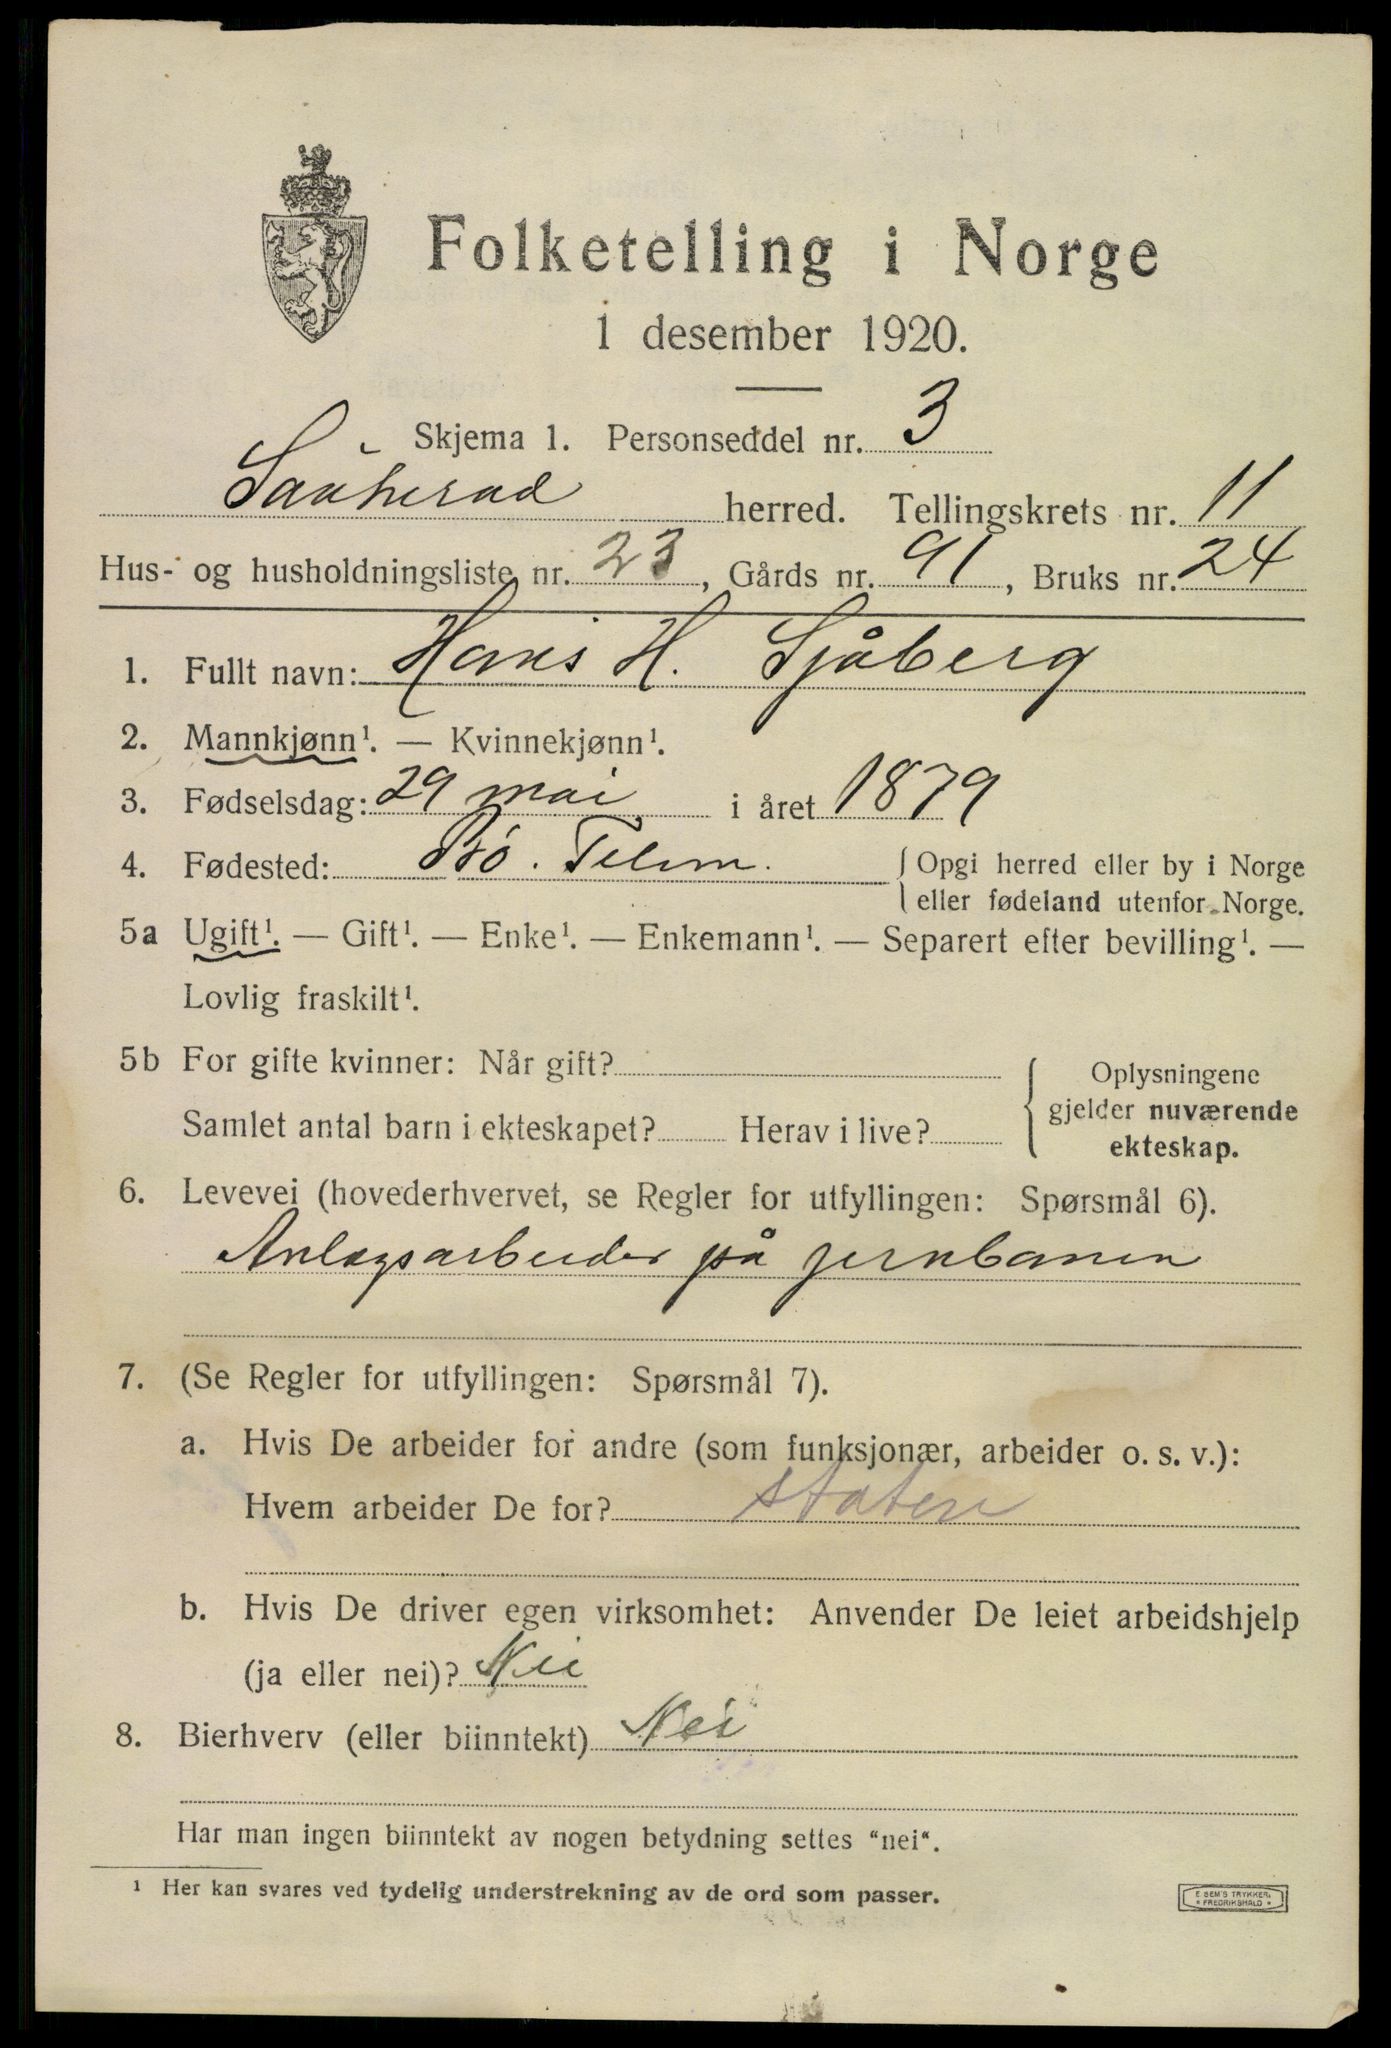 Folketelling i Norge
1 desember 1920.
Skjema 1. Personseddel nr. 3
Sauherad herred. Tellingskrets nr. 11
Hus- og husholdningsliste nr. 23, Gårds nr. 91, Bruks nr. 24
1. Fullt navn: Hans H. Sjåberg
2. Mannkjønn¹. — Kvinnekjønn¹.
3. Fødselsdag: 29 mai i året 1879
4. Fødested: Bø. Telem. { Opgi herred eller by i Norge
eller fødeland utenfor Norge.
5a Ugift¹. — Gift¹. — Enke¹. — Enkemann¹. — Separert efter bevilling¹. —
Lovlig fraskilt¹.
5b For gifte kvinner: Når gift?
Samlet antal barn i ekteskapet? Herav i live?
Oplysningene
gjelder nuværende
ekteskap.
6. Levevei (hovederhvervet, se Regler for utfyllingen: Spørsmål 6).
Anlægsarbeider på jernbanen
7. (Se Regler for utfyllingen: Spørsmål 7).
a. Hvis De arbeider for andre (som funksjonær, arbeider o. s. v.):
Hvem arbeider De for? staten
b. Hvis De driver egen virksomhet: Anvender De leiet arbeidshjelp
(ja eller nei)? Nei
8. Bierhverv (eller biinntekt) Nei
Har man ingen biinntekt av nogen betydning settes “nei“.
¹ Her kan svares ved tydelig understrekning av de ord som passer.
E. SEM'S TRYKKERI
* FREDRIKSHALD *